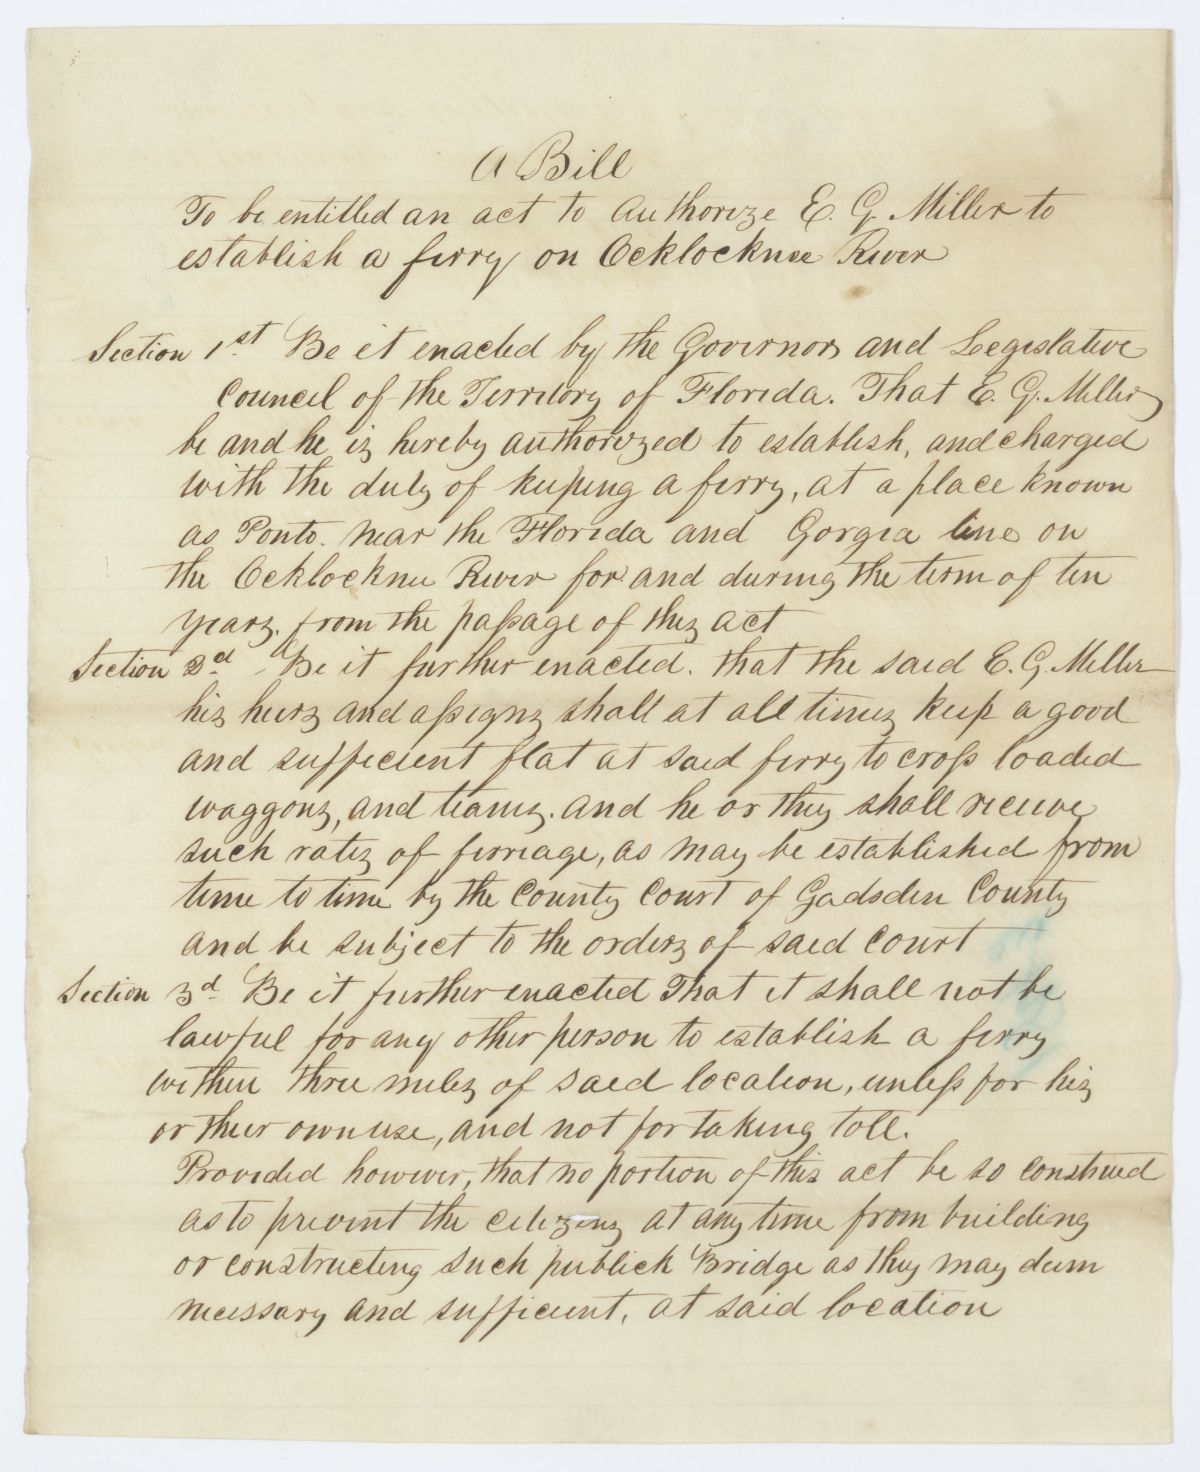 A Bill
To be entitled an act to Authorize E. G. Miller to
establish a ferry on Ocklocknee River
Section 1st Be it enacted by the Governor and Legislative
Council of the Territory of Florida. That E. G. Miller
be and he is hereby authorized to establish, and charged
with the duty of keeping a ferry, at a place known
as Ponto. near the Florida and Gorgia line on
the Ocklocknee River for and during the term of ten
years, from the passage of this act
Section 2d Be it further enacted. that the said E. G. Miller
his heirs and assigns shall at all times keep a good
and sufficient flat at said ferry to cross loaded
waggons, and teams. and he or they shall receive
such rates of ferriage, as may be established from
time to time by the County Court of Gadsden County
and be subject to the orders of said Court
Section 3d Be it further enacted That it shall not be
lawful for any other person to establish a ferry
within three miles of said location, unless for his
or their own use, and not for taking toll.
Provided however, that no portion of this act be so construed
as to prevent the citizens at any time from building
or constructing such publick Bridge as they may deem
necessary and sufficient, at said location